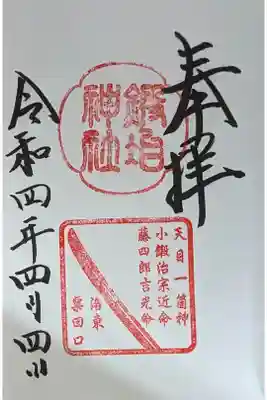 奉拝
鍛冶
神社
天目一箇神
小鍛治宗近命
藤四郎吉光命
洛東
粟田口
令和四年四月四日